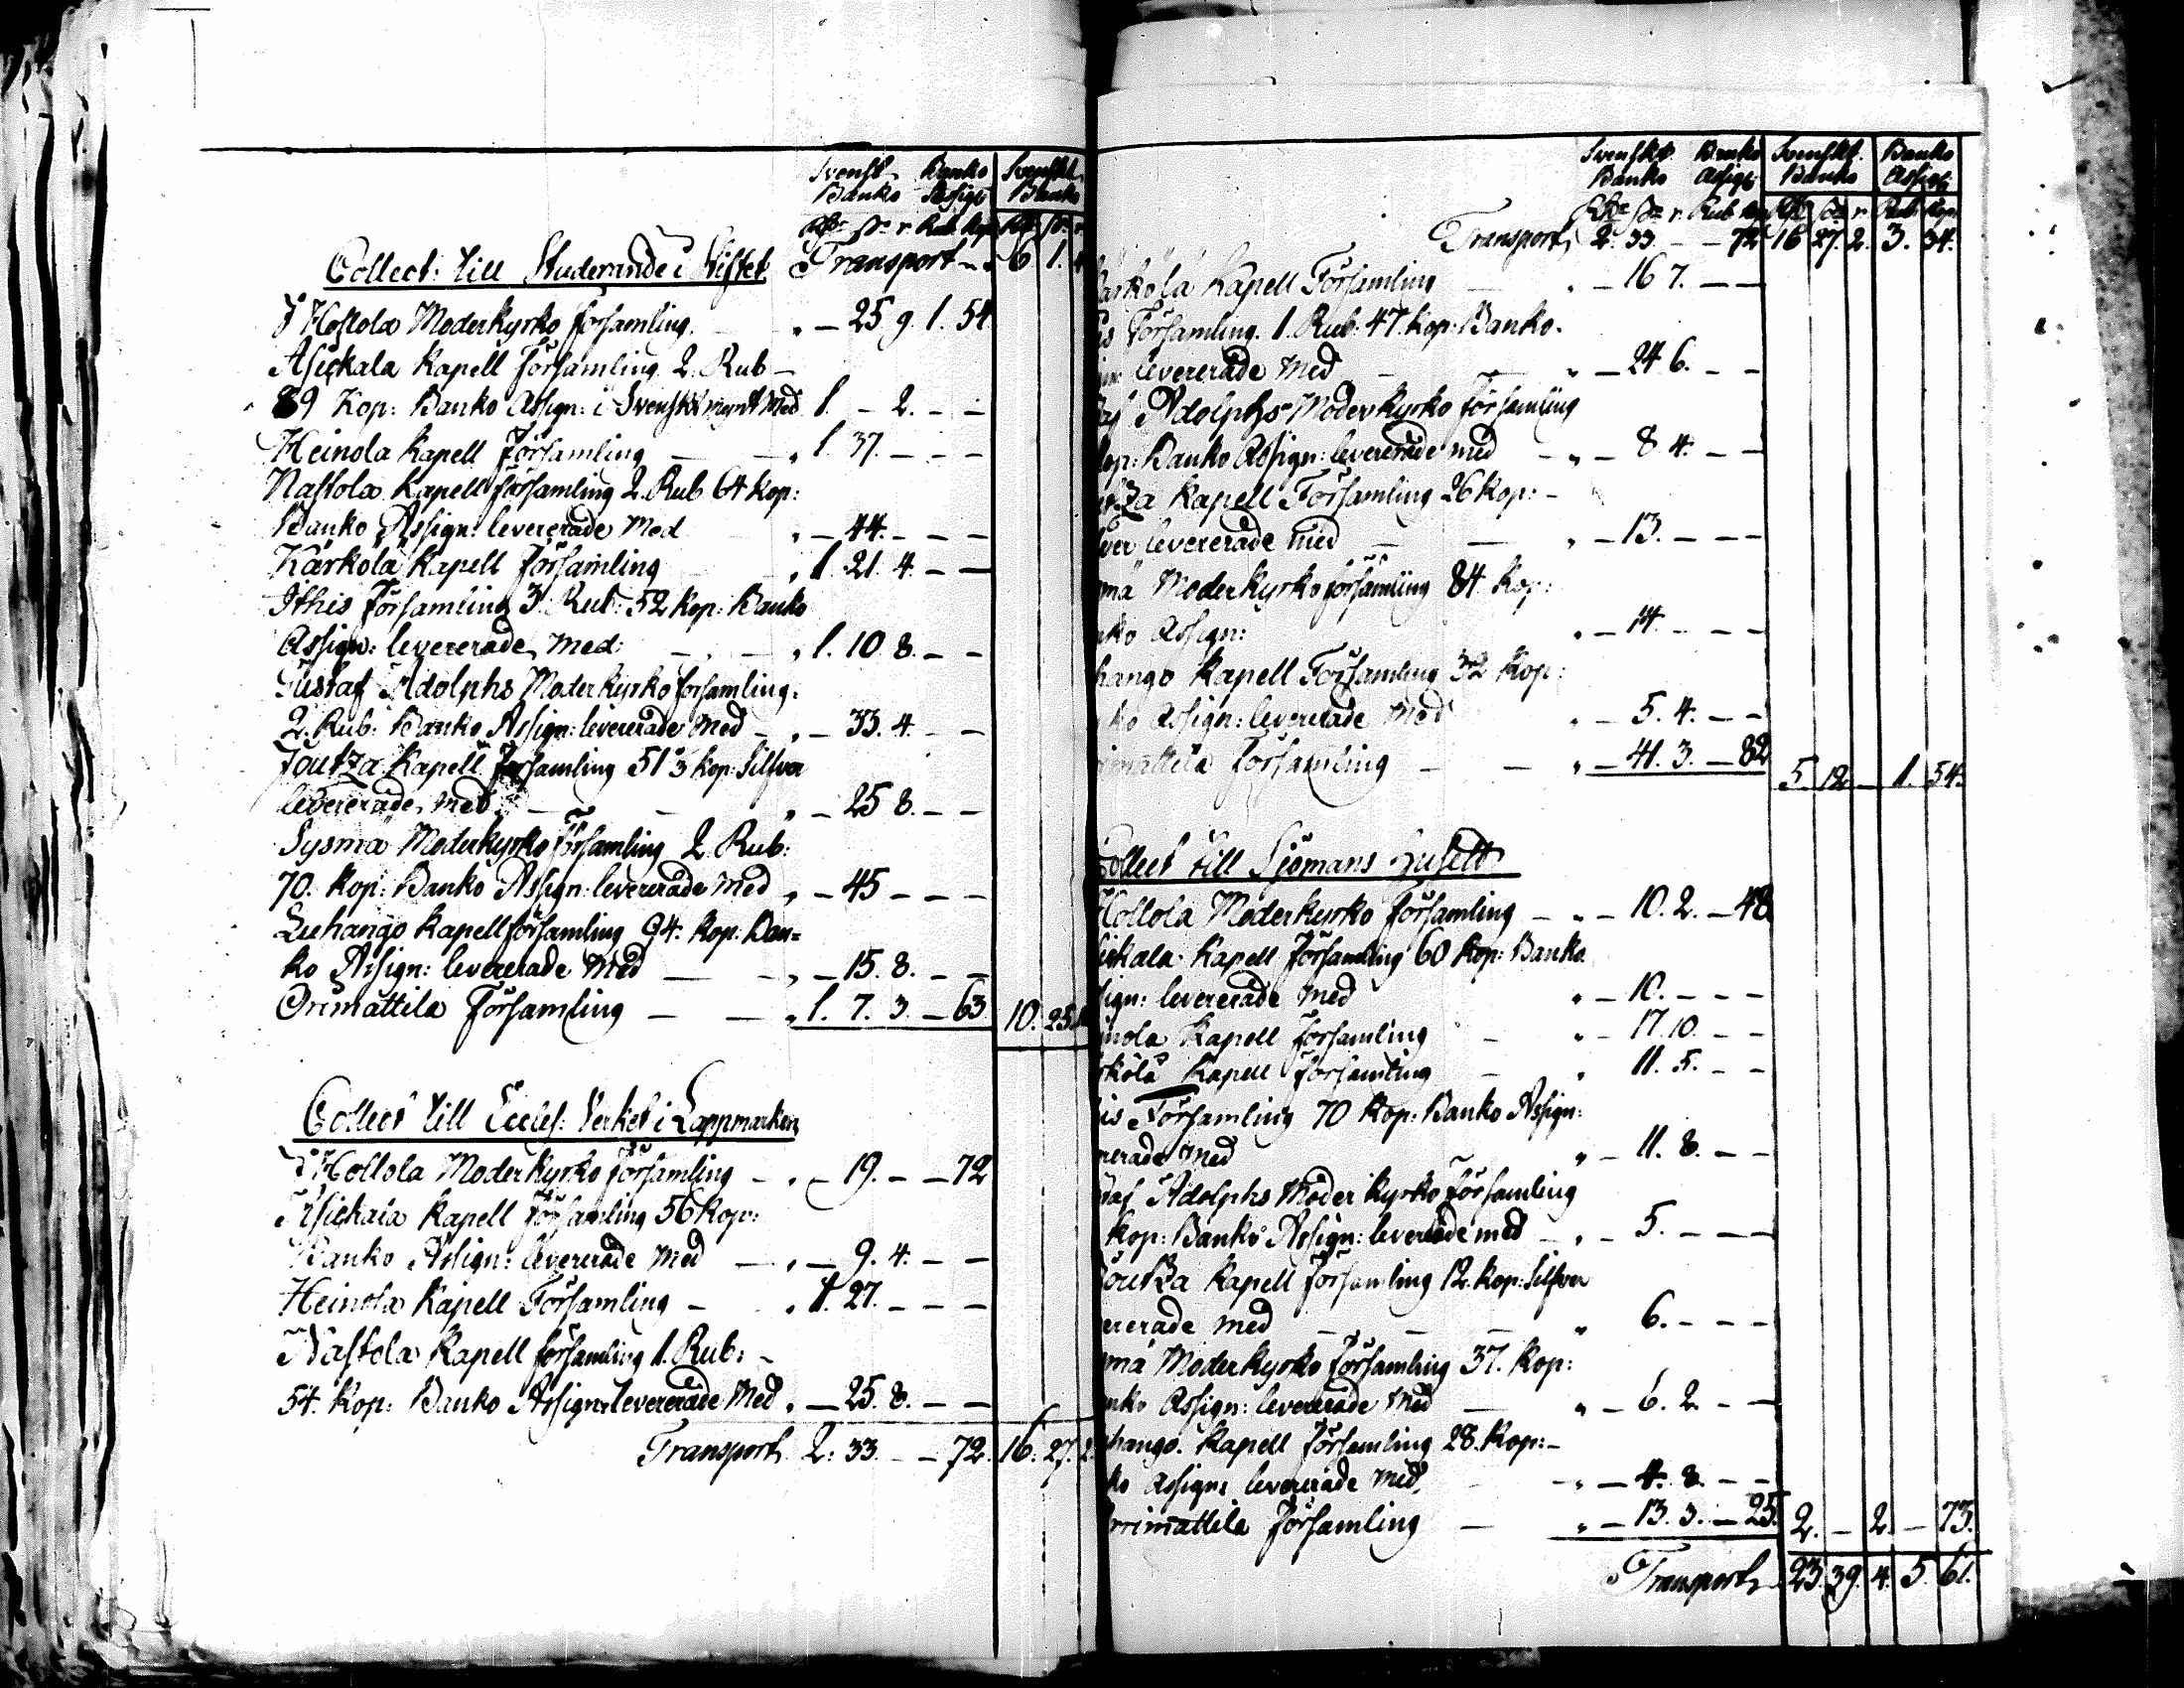 Svenskt Banko Svenskt
Banko Assign Banko
Rdr sk r Rub Kop Rdr sk r
Collect: till Studerande i Stiftet Transport 6 1.
I Hollola Moderkyrko församling „ — 25. 9. 1. 54
Asickala Kapell Församling 2. Rub —
89 Kop: Banko Assign: i Svenskt mynt med 1. — 2. — —
Heinola Kapell Församling — „ 1. 37. — — —
Nastola Kapell församling 2. Rub 64 Kop:
Banko Assign: levererade med „ — 44. — — —
Kärkölä Kapell Församling „ 1. 21. 4. — —
Ithis Församling 3. Rub: 52 Kop: Banko
Assign: levererade med: — „ 1. 10. 8. — —
Gustaf Adolphs Moderkyrko församling.
2. Rub: Banko Assign: levererade med — „ — 33. 4. — —
Joutza Kapell Församling 51 Kop: Silfver
levererade med — „ — 25. 8. — —
Sysmä Moderkyrko Församling 2 Rub:
70. Kop: Banko Assign: levererade med „ — 45 — — —
Luhango Kapell församling 94. Kop: Ban=
ko Assign: levererade med — „ — 15. 8. — —
Orimattila Församling — — „ 1. 7. 3. — 63 10. 25.
Collect till Eccles: Verket i Lappmarken
I Hollola Moderkyrko församling — „ — 19. — — 72
Asickala Kapell Församling 56 Kop:
Banko Assign: levererade med — „ — 9. 4. — —
Heinola Kapell Församling — „ 1. 27. — — —
Nastola Kapell församling 1. Rub: —
54. Kop: Banko Assign: levererade med „ — 25. 8. — —
Transport 2. 33. — — 72. 16. 27. 2.
Svenskt Banko Svenskt Banko
Banko Assign Banko Assign
Rdr sk r Rub Kop Rdr sk r Rub Kop
Transport 2. 33. — — 72 16 27. 2. 3. 34.
ärkölä Kapell Församling — „ — 16 7. — —
is Församling. 1. Rub. 47. Kop: Banko.
levererade med — „ — 24 6. — —
af Adolphs Moderkyrko Församling
op: Banko Assign: levererade med — „ — 8 4. — —
tza Kapell Församling 26 Kop: —
ver levererade med — — „ — 13. — — —
mä Moderkyrko församling 84 Kop:
nko Assign: „ — 14. — — —
hango Kapell Församling 32 Kop:
ko Assign: levererade med „ — 5. 4. — —
rimattila Församling — — „ — 41. 3. — 82
5. 12 — 1. 54.
Collect till Sjömans Husett
Hollola Moderkyrko Församling — „ — 10. 2. — 48
ikala Kapell Församling 60 Kop: Banko
sign: levererade med „ — 10. — — —
inola Kapell Församling — „ — 17. 10. — —
rkölä Kapell Församling — „ 11. 5. — —
is Församling 70 Kop: Banko Assign:
rerade med „ — 11. 8. — —
af Adolphs Moder kyrko Församling
Kop: Banko Assign: levererade med — „ — 5. — — —
outza Kapell församling 12. Kop: Silfver
ererade med — — — „ 6. — — —
mä Moderkyrko Församling 37. Kop:
nko Assign: levererade med — „ — 6. 2. — —
hango. Kapell Församling 28. Kop: —
ko Assign: levererade med, — „ — 4. 8. — —
rimattila Församling — „ — 13. 3. — 25. 2. — 2. — 73.
Transport 23. 39. 4. 5. 61.